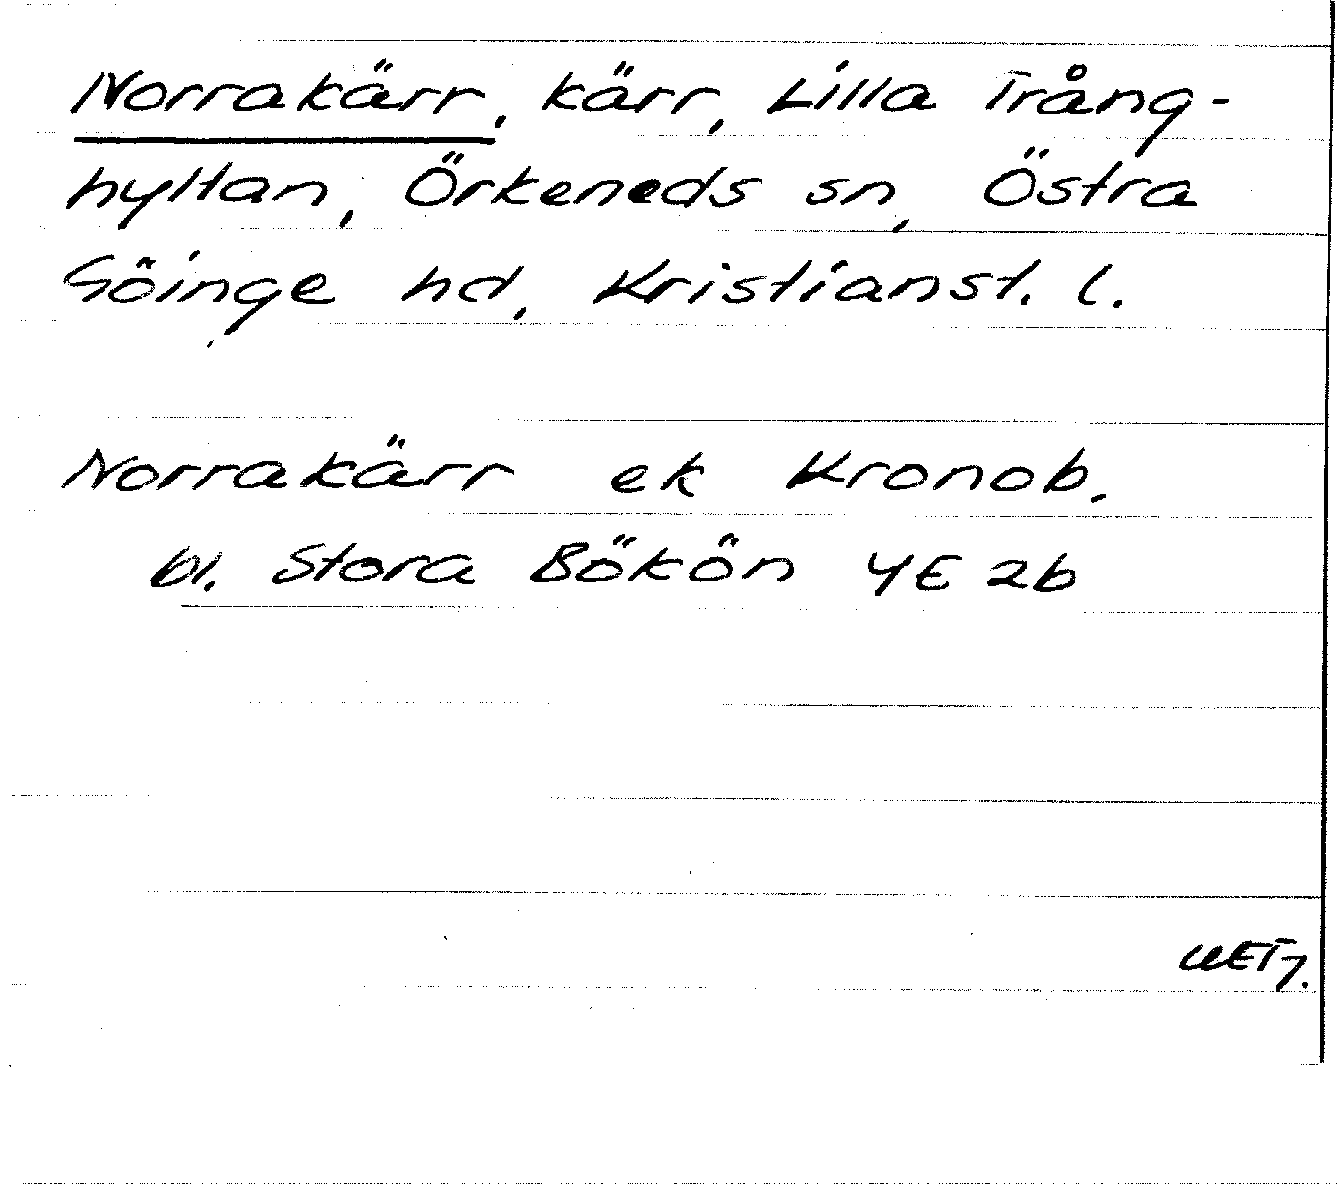 Norrakärr, kärr, Lilla Trång-
hyltan, Örkeneds sn, Östra
Göinge hd, Kristianst. l.
Norrakärr ek Kronob.
bl. Stora Bökön 4E 2b